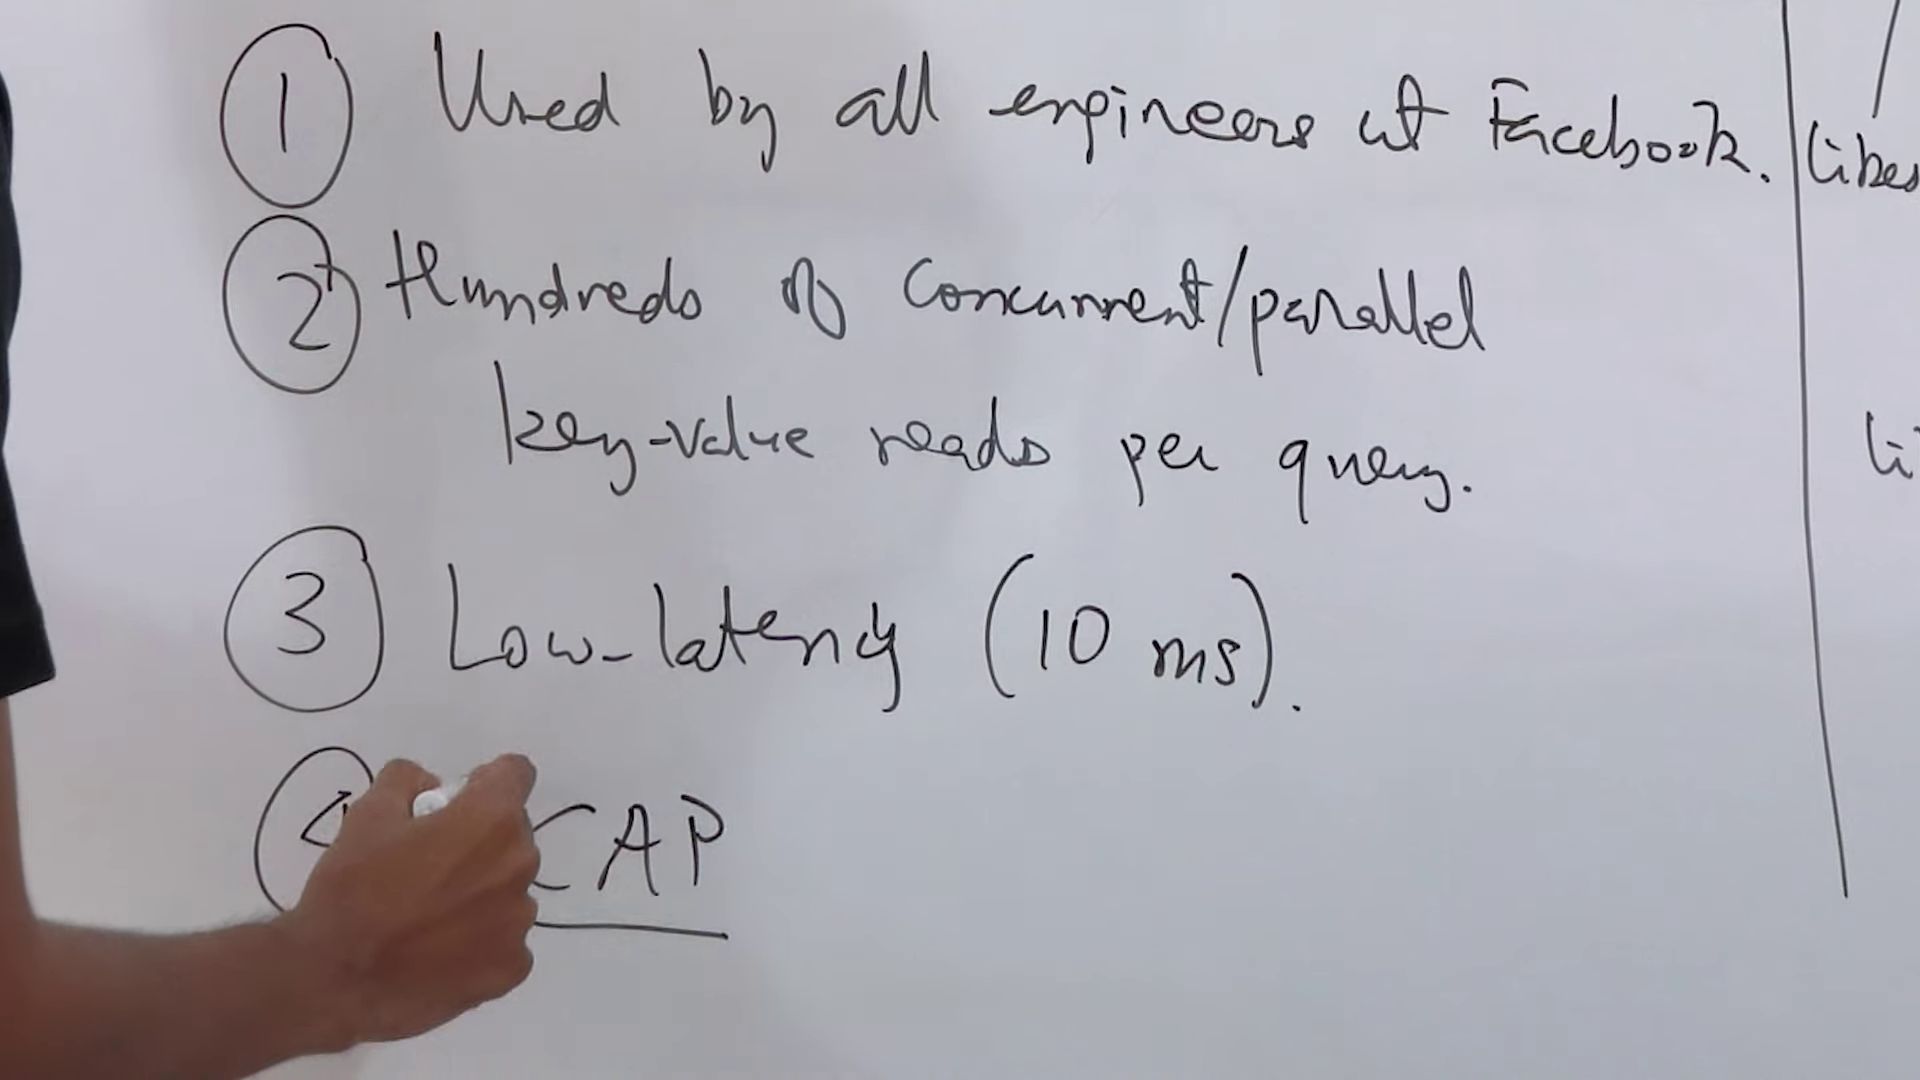 1 Used by all engineers at Facebook.
2 Hundreds of concurrent/parallel
key-value reads per query.
3 Low-latency (10 ms).
4 CAP
likes